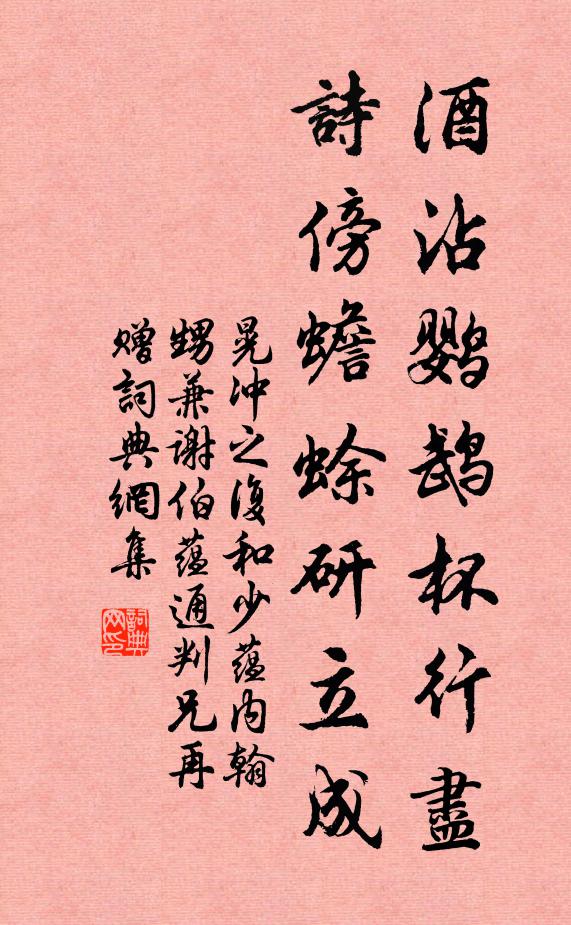 酒沾鸚鵡杯行盡
詩傍蟾蜍研立成
晁沖之復和少蘊內翰
甥兼謝伯蘊通判兄再
贈詞典網集
詞典网印